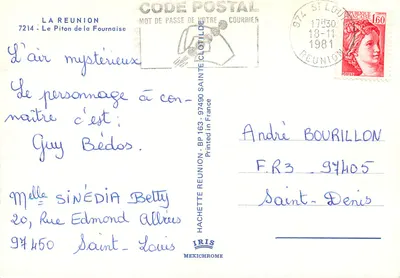 LA REUNION
7214 - Le Piton de la Fournaise
CODE POSTAL
MOT DE PASSE DE VOTRE COURRIER
974 ST LOUIS
17H30
18-11
1981
REUNION
1,60
L'air mystérieux
Le personnage à con-
naître c'est :
Guy Bedos.
Melle SINÉDIA Betty
20, Rue Edmond Albius
97450 Saint-Louis
HACHETTE REUNION - BP 163 - 97490 SAINTE CLOTILDE
Printed in France
IRIS
MEXICHROME
André BOURILLON
F.R3 97405
Saint-Denis